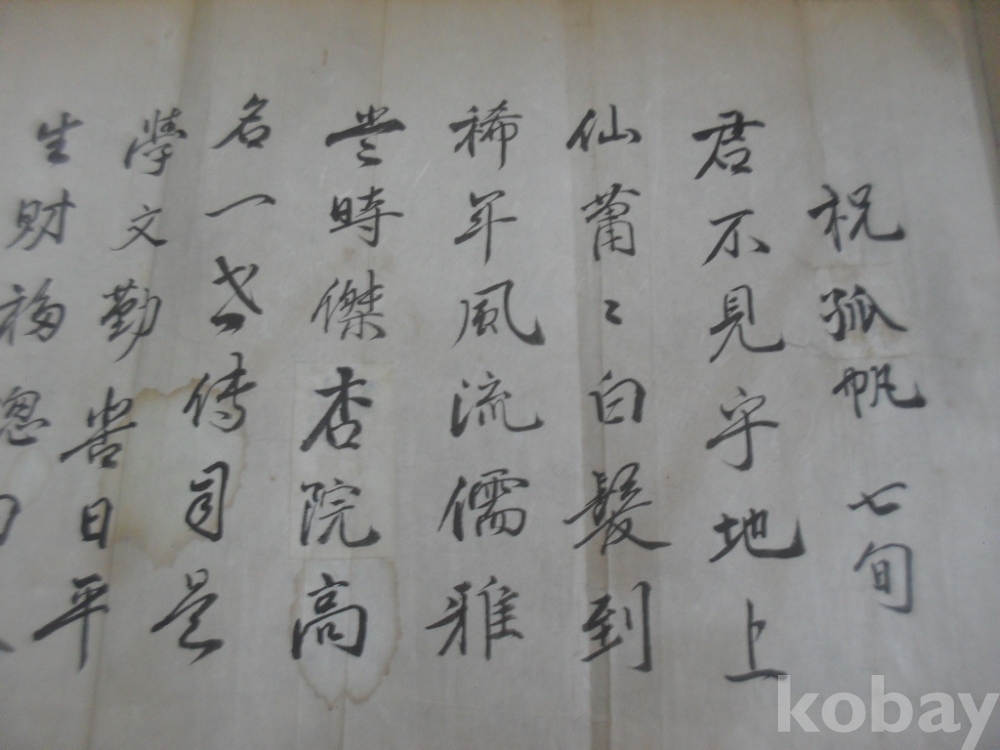 祝孤帆七旬
君不見宇地上
仙蕭〻白髮到
稀年風流儒雅
當時傑杏院高
名一世傳司是
學文勤苦日平
生財福
kobay